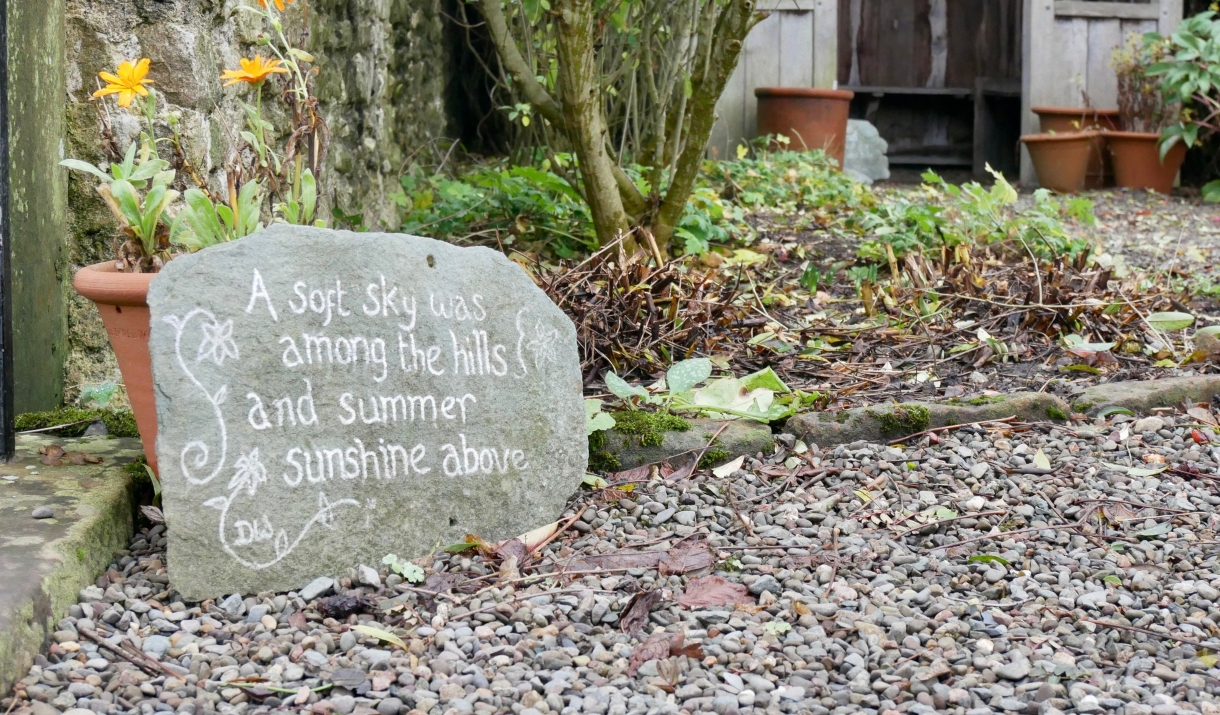 A soft sky was
among the hills
and summer
sunshine above
DW